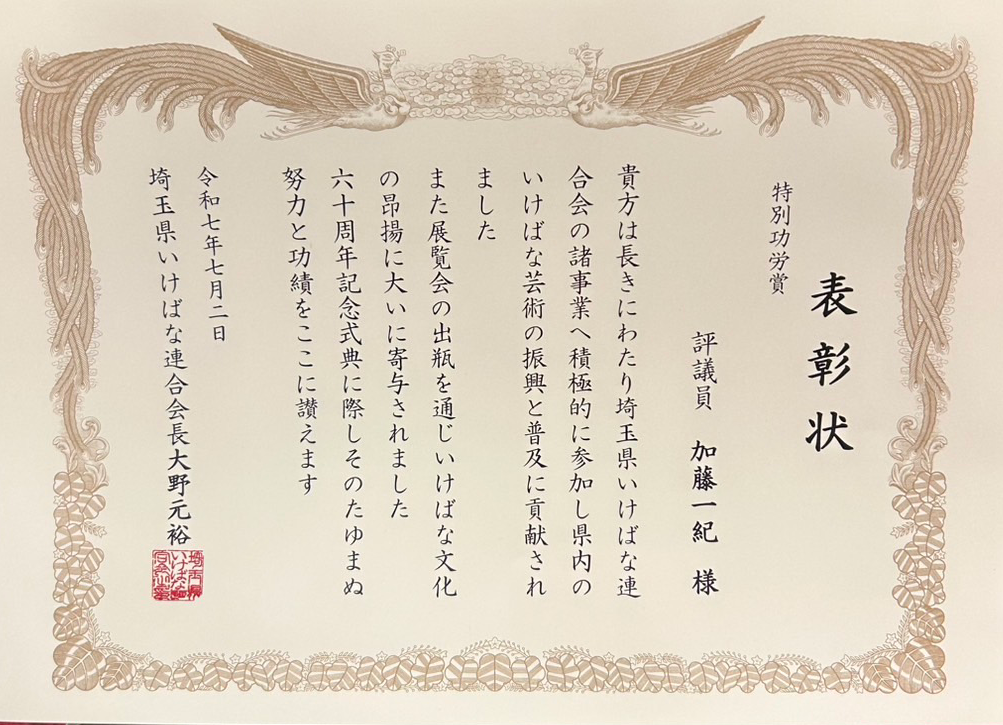 表彰状
特別功労賞
評議員　加藤一紀　様
貴方は長きにわたり埼玉県いけばな連
合会の諸事業へ積極的に参加し県内の
いけばな芸術の振興と普及に貢献され
ました
また展覧会の出瓶を通じいけばな文化
の昂揚に大いに寄与されました
六十周年記念式典に際しそのたゆまぬ
努力と功績をここに讃えます
令和七年七月二日
埼玉県いけばな連合会長大野元裕